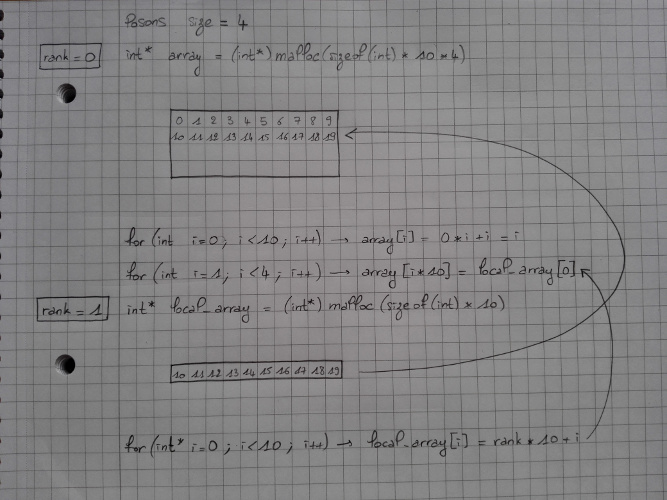 Posons size = 4
rank = 0 int* array = (int*) malloc (sizeof(int) * 10 * 4)
0 1 2 3 4 5 6 7 8 9
10 11 12 13 14 15 16 17 18 19
for (int i=0; i<10; i++) → array[i] = 0*i+i = i
for (int i=1; i<4; i++) → array[i*10] = local_array[0]
rank = 1 int* local_array = (int*) malloc (sizeof(int) * 10)
10 11 12 13 14 15 16 17 18 19
for (int* i=0; i<10; i++) → local_array[i] = rank * 10 + i